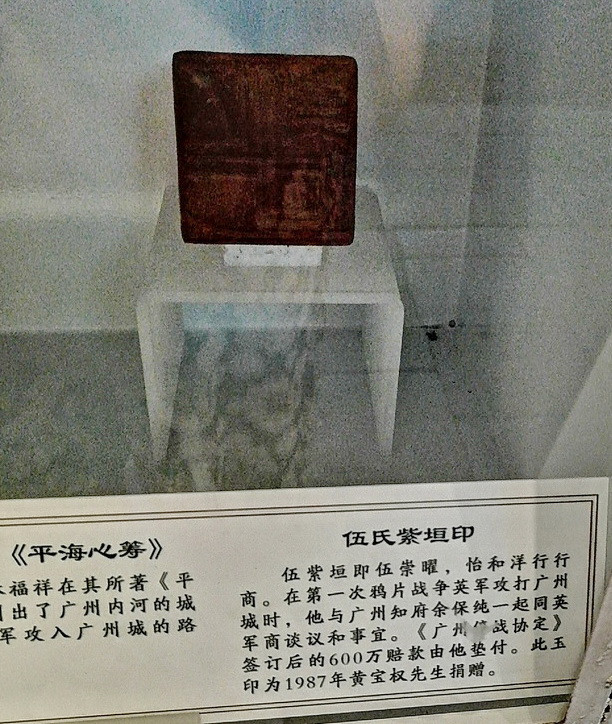 《平海心筹》
福祥在其所著《平
出了广州内河的城
军攻入广州城的路
伍氏紫垣印
伍紫垣即伍崇曜，怡和洋行行
商。在第一次鸦片战争英军攻打广州
城时，他与广州知府余保纯一起同英
军商谈议和事宜。《广州停战协定》
签订后的600万赔款由他垫付。此玉
印为1987年黄宝权先生捐赠。